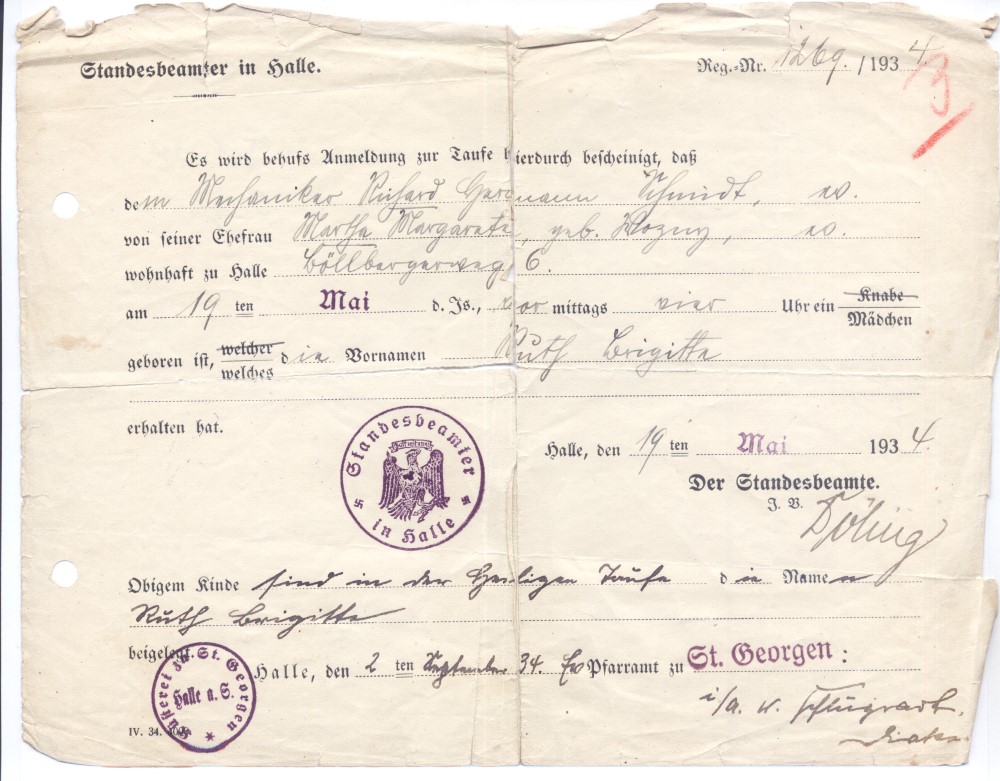 Standesbeamter in Halle.
Reg.-Nr. 1269. / 1934.
3
Es wird behufs Anmeldung zur Taufe hierdurch bescheinigt, daß
dem Mechaniker Richard Hermann Schmidt, ev.
von seiner Ehefrau Martha Margarete, geb. Wozny, ev.
wohnhaft zu Halle Böllbergerweg 6.
am 19 ten Mai d. Js., vor mittags vier Uhr ein Knabe
Mädchen
geboren ist, welcher die Vornamen Ruth Brigitte
welches
erhalten hat.
Halle, den 19 ten Mai 1934.
Der Standesbeamte.
J. V.
Standesbeamter
in Halle
Obigem Kinde sind in der Heiligen Taufe die Namen
Ruth Brigitte
beigelegt.
Halle, den 2 ten September 34. Ev Pfarramt zu St. Georgen :
Küsterei zu St. Georgen
Halle a. S.
i/A.
IV. 34.